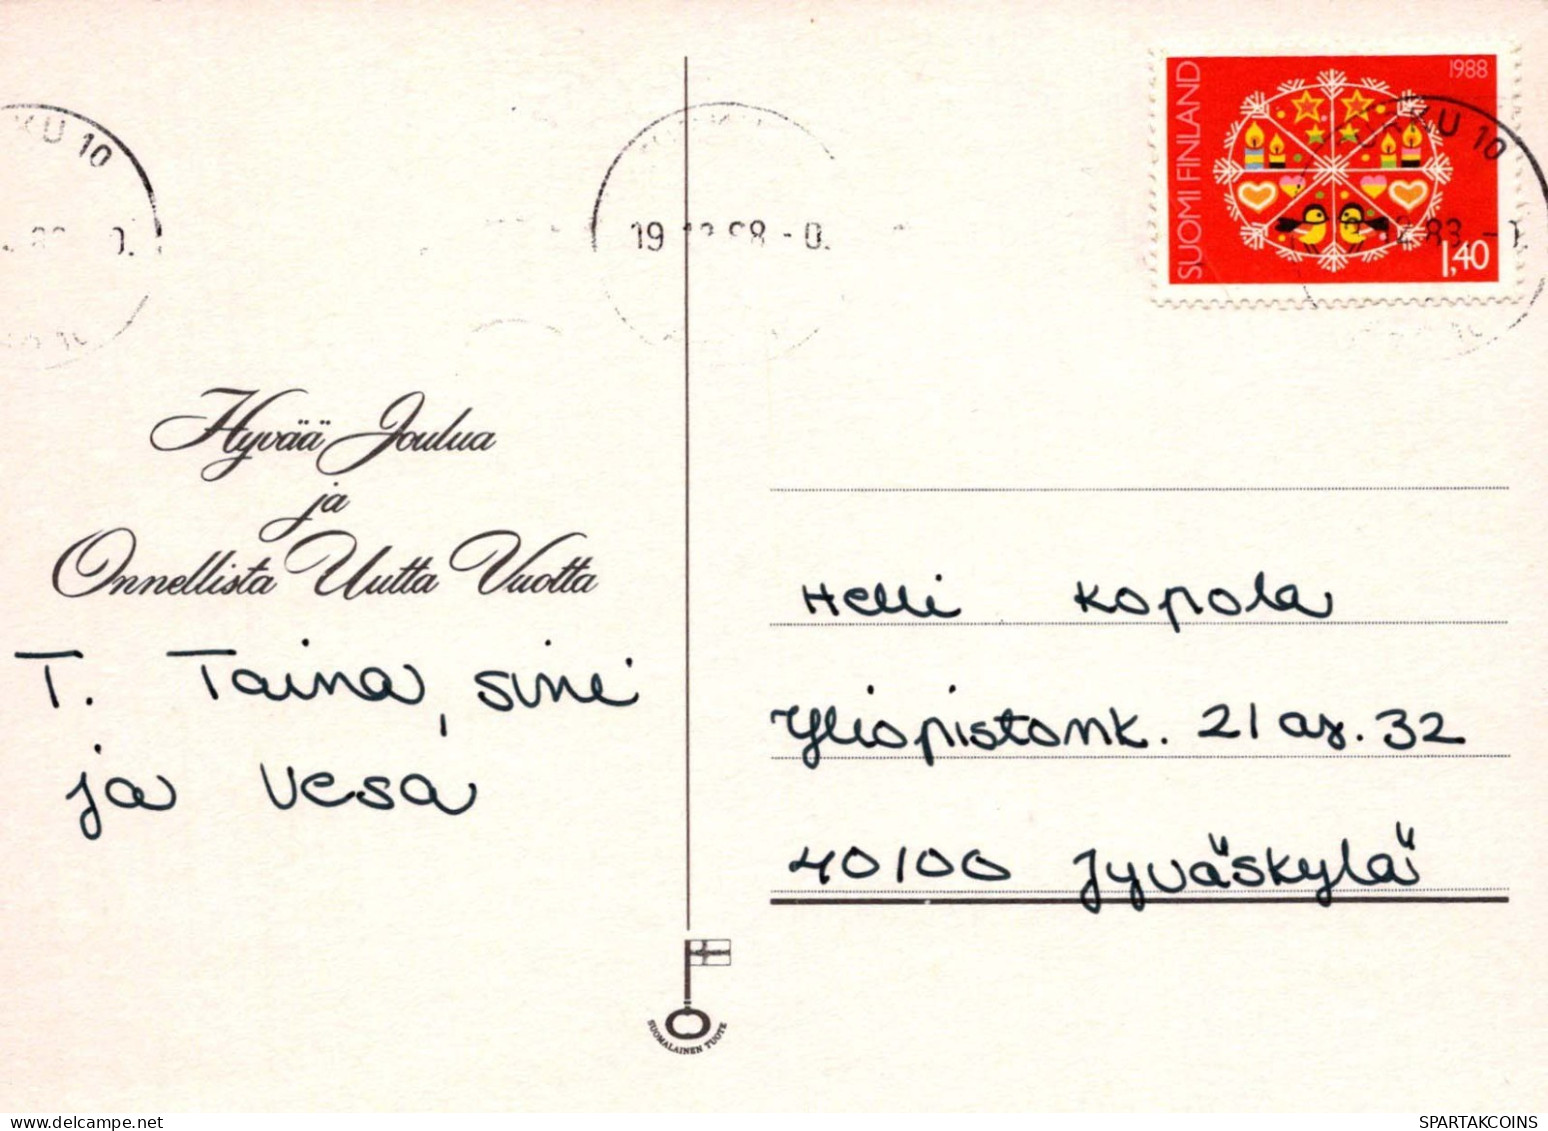 KU 10
19 12 88 - 0.
TURKU 10
SUOMI FINLAND
1988
1,40
Hyvää Joulua
ja
Onnellista Uutta Vuotta
T. Taina, Sini
ja Vesa
Helli Kopola
Yliopistonk. 21 as. 32
40100 Jyväskylä
SUOMALAINEN TUOTE
www.delcampe.net
SPARTAKCOINS